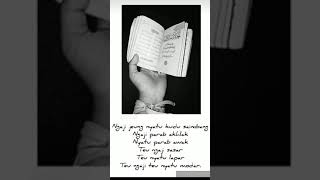 Ngaji jeung nyatu kudu saimbang
Ngaji parab akhlak
Nyatu parab awak
Teu ngaji sasar
Teu nyatu lapar
Teu ngaji teu nyatu modar.